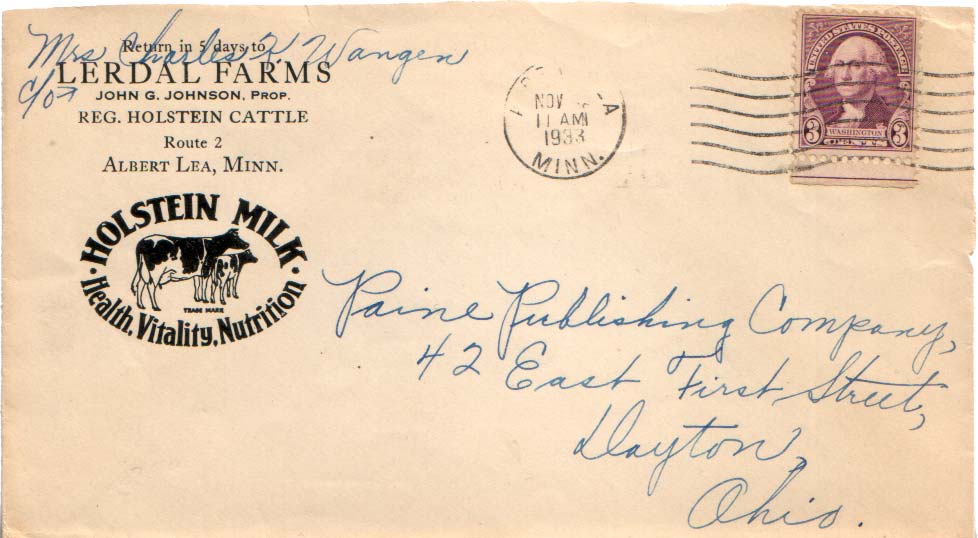 Return in 5 days to
Mrs Charles R. Wangen
c/o
LERDAL FARMS
JOHN G. JOHNSON, PROP.
REG. HOLSTEIN CATTLE
Route 2
ALBERT LEA, MINN.
· HOLSTEIN MILK ·
TRADE MARK
Health, Vitality, Nutrition
NOV
11 AM
1933
MINN.
UNITED STATES POSTAGE
3 WASHINGTON 3
CENTS
Paine Publishing Company,
42 East First Street,
Dayton,
Ohio.